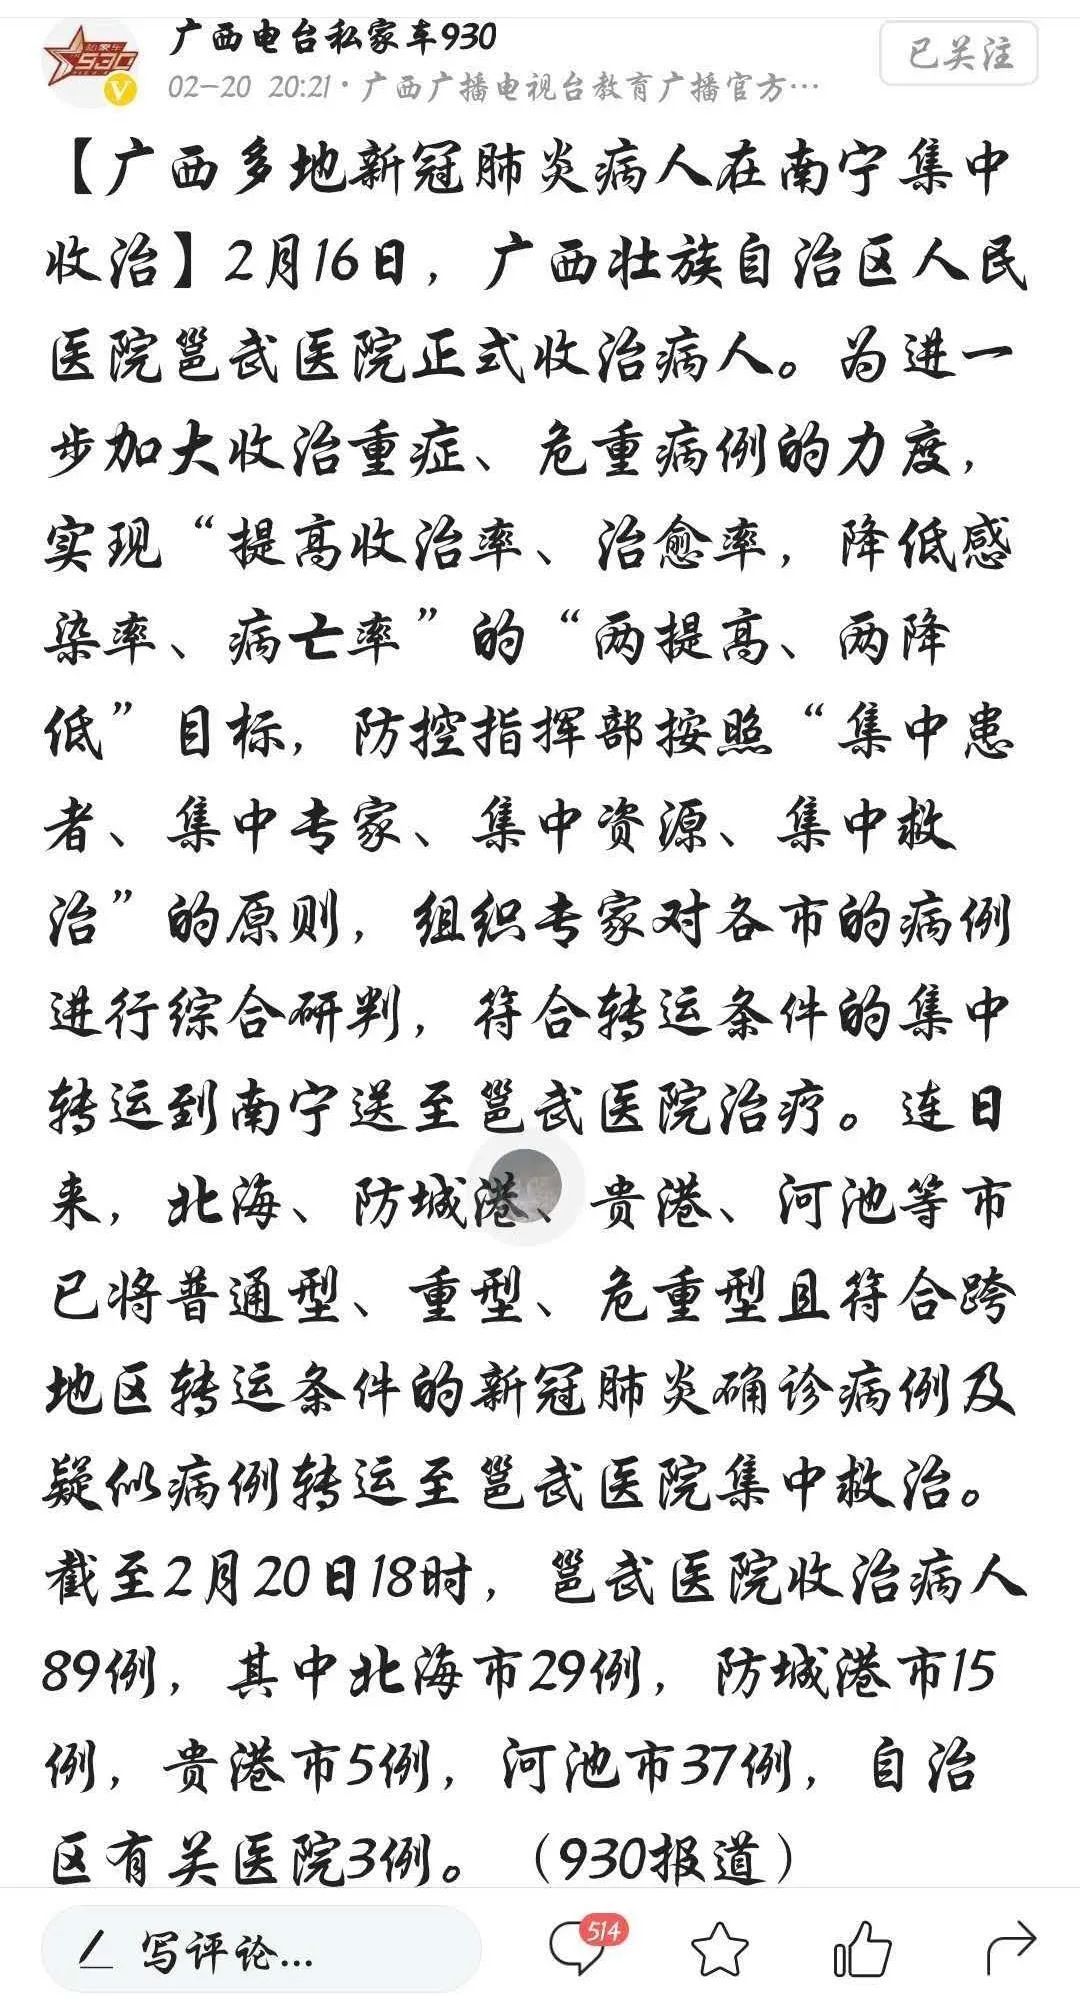 广西电台私家车930
已关注
02-20 20:21·广西广播电视台教育广播官方…
【广西多地新冠肺炎病人在南宁集中
收治】2月16日，广西壮族自治区人民
医院邕武医院正式收治病人。为进一
步加大收治重症、危重病例的力度，
实现“提高收治率、治愈率，降低感
染率、病亡率”的“两提高、两降
低”目标，防控指挥部按照“集中患
者、集中专家、集中资源、集中救
治”的原则，组织专家对各市的病例
进行综合研判，符合转运条件的集中
转运到南宁送至邕武医院治疗。连日
来，北海、防城港、贵港、河池等市
已将普通型、重型、危重型且符合跨
地区转运条件的新冠肺炎确诊病例及
疑似病例转运至邕武医院集中救治。
截至2月20日18时，邕武医院收治病人
89例，其中北海市29例，防城港市15
例，贵港市5例，河池市37例，自治
区有关医院3例。（930报道）
写评论...
514